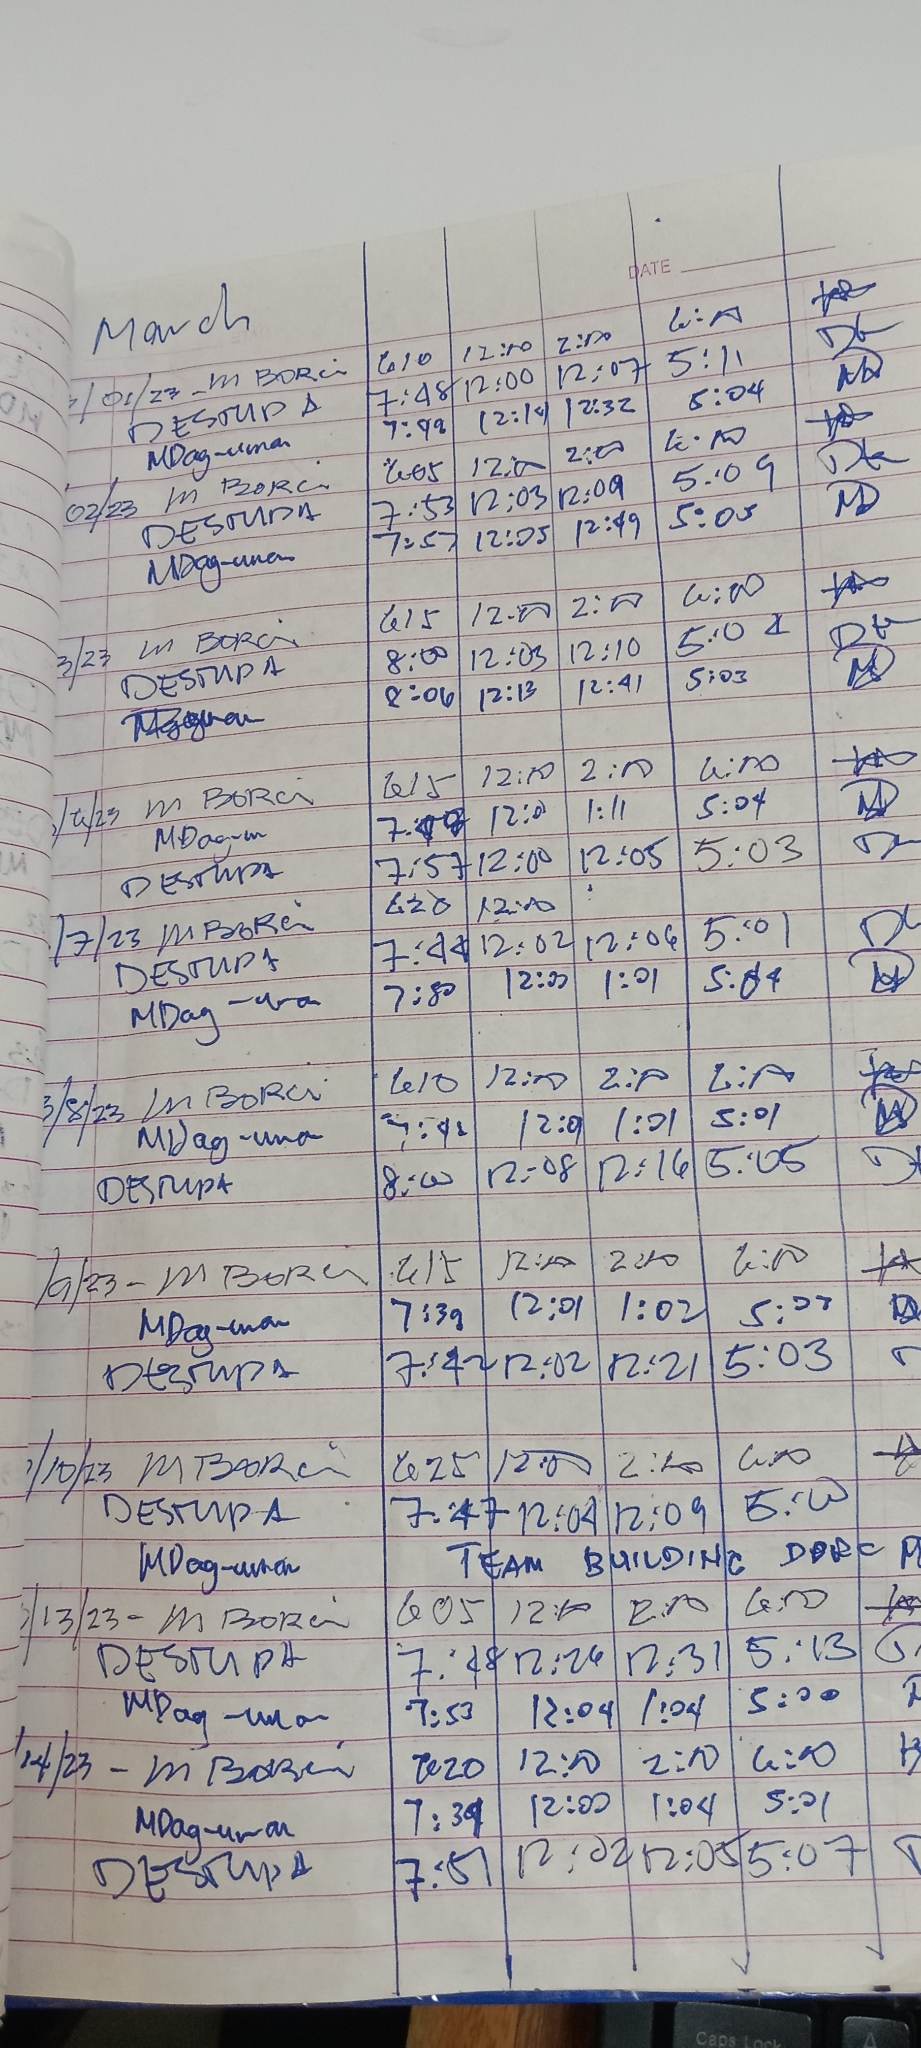 DATE
March
/01/23 - M BORCi 610 12:00 2:00 6:00
DESTUPA 7:48 12:00 12:07 5:11 DE
MDag-uman 12:14 12:32 5:04 MD
02/23 M BORCi 605 12:00 2:00 6:00
DESTUPA 7:53 12:03 12:09 5:09 DE
MDag-uman 7:57 12:05 12:49 5:05 MD
3/23 M BORCi 615 12:00 2:00 6:00
DESTUPA 8:00 12:03 12:10 5:04 DE
8:06 12:13 12:41 5:03 MD
/6/23 M BORCi 615 12:00 2:00 6:00
MDag-un 12:01 1:11 5:04 MD
DESTUPA 7:57 12:00 12:05 5:03
/7/23 M BORCi 620 12:00
DESTUPA 7:44 12:02 12:06 5:01
MDag-una 12:00 1:01 5:04 MD
3/8/23 M BORCi 610 12:00 2:00 6:00
MDag-una 12:01 1:01 5:01 MD
DESTUPA 8:00 12:08 12:16 5:05
/9/23 - M BORCi 615 12:00 2:00 6:00
MDag-uman 7:39 12:01 1:02
DESTUPA 7:42 12:02 12:21 5:03
/10/23 M BORCi 625 12:00 2:00 6:00
DESTUPA 7:47 12:04 12:09 5:00
MDag-uman TEAM BUILDING
/13/23 - M BORCi 605 12:00 2:00 6:00
DESTUPA 7:48 12:26 12:31 5:13
MDag-una 7:53 12:04 1:04 5:00
14/23 - M BORCi 620 12:00 2:00 6:00
MDag-uman 7:39 12:00 1:04 5:01
DESTUPA 7:51 12:02 12:05 5:07
Caps Lock
A